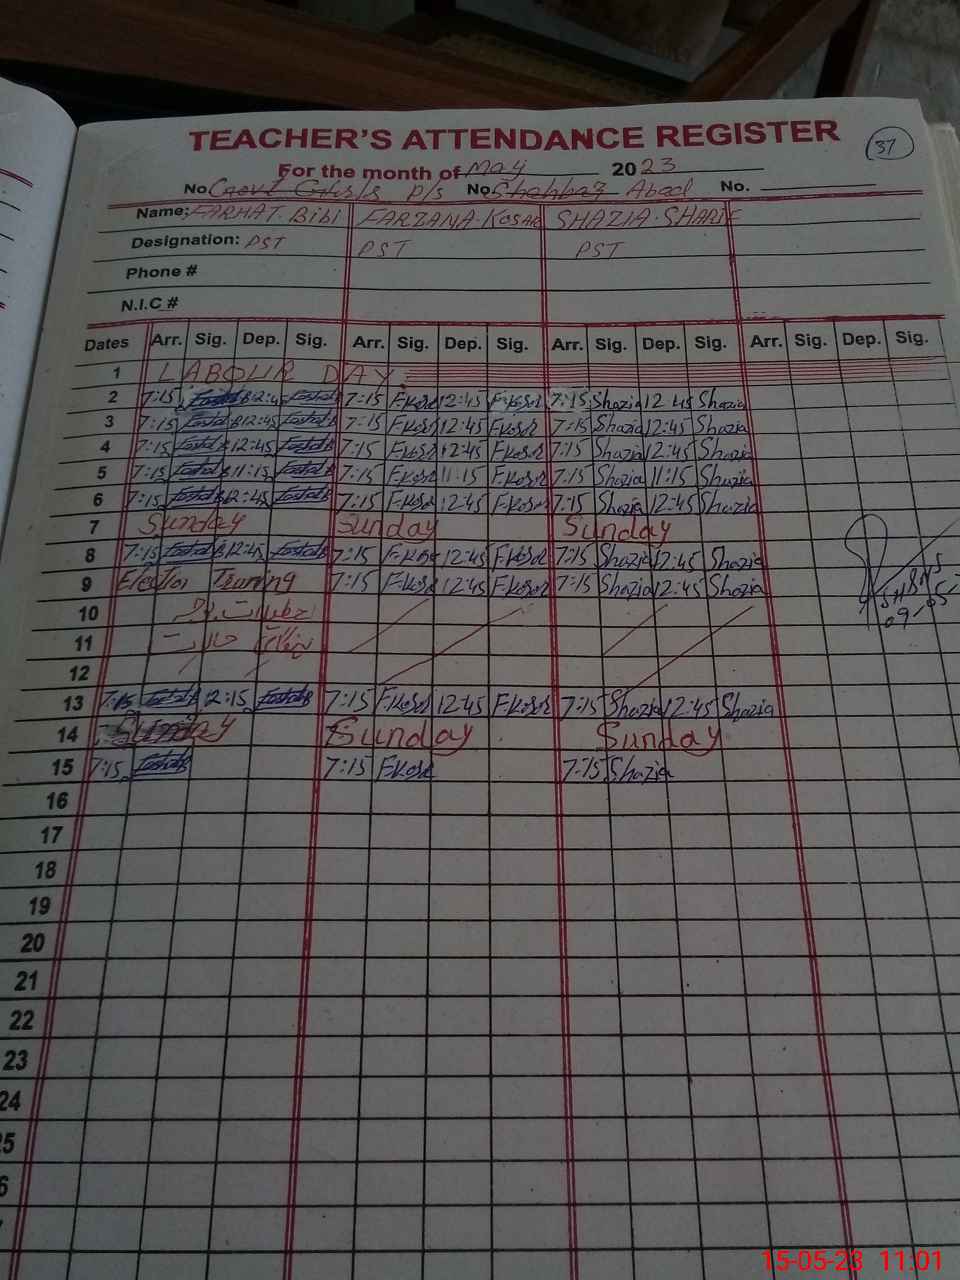 TEACHER'S ATTENDANCE REGISTER
37
For the month of May 2023
No Govt Girls P/S No Shahbaz Abad No.
Name: FARHAT. Bibi FARZANA. KOSAR SHAZIA. SHARIF
Designation: PST PST PST
Phone #
N.I.C #
Dates Arr. Sig. Dep. Sig. Arr. Sig. Dep. Sig. Arr. Sig. Dep. Sig. Arr. Sig. Dep. Sig.
1 LABOUR DAY
2 7:15 12:45 7:15 F.Kosar 12:45 F.Kosar 7:15 Shazia 12:45 Shazia
3 7:15 12:45 7:15 F.Kosar 12:45 F.Kosar 7:15 Shazia 12:45 Shazia
4 7:15 12:45 7:15 F.Kosar 12:45 F.Kosar 7:15 Shazia 12:45 Shazia
5 7:15 11:15 7:15 F.Kosar 11:15 F.Kosar 7:15 Shazia 11:15 Shazia
6 7:15 12:45 7:15 F.Kosar 12:45 F.Kosar 7:15 Shazia 12:45 Shazia
7 Sunday Sunday Sunday
8 7:15 12:45 7:15 F.Kosar 12:45 F.Kosar 7:15 Shazia 12:45 Shazia
9 Election Training 7:15 F.Kosar 12:45 F.Kosar 7:15 Shazia 12:45 Shazia
09-05
10
11 حالات
12
13 7:15 12:15 7:15 F.Kosar 12:45 F.Kosar 7:15 Shazia 12:45 Shazia
14 Sunday Sunday Sunday
15 7:15 7:15 F.Kosar 7:15 Shazia
16
17
18
19
20
21
22
23
24
5
6
15-05-23 11:01